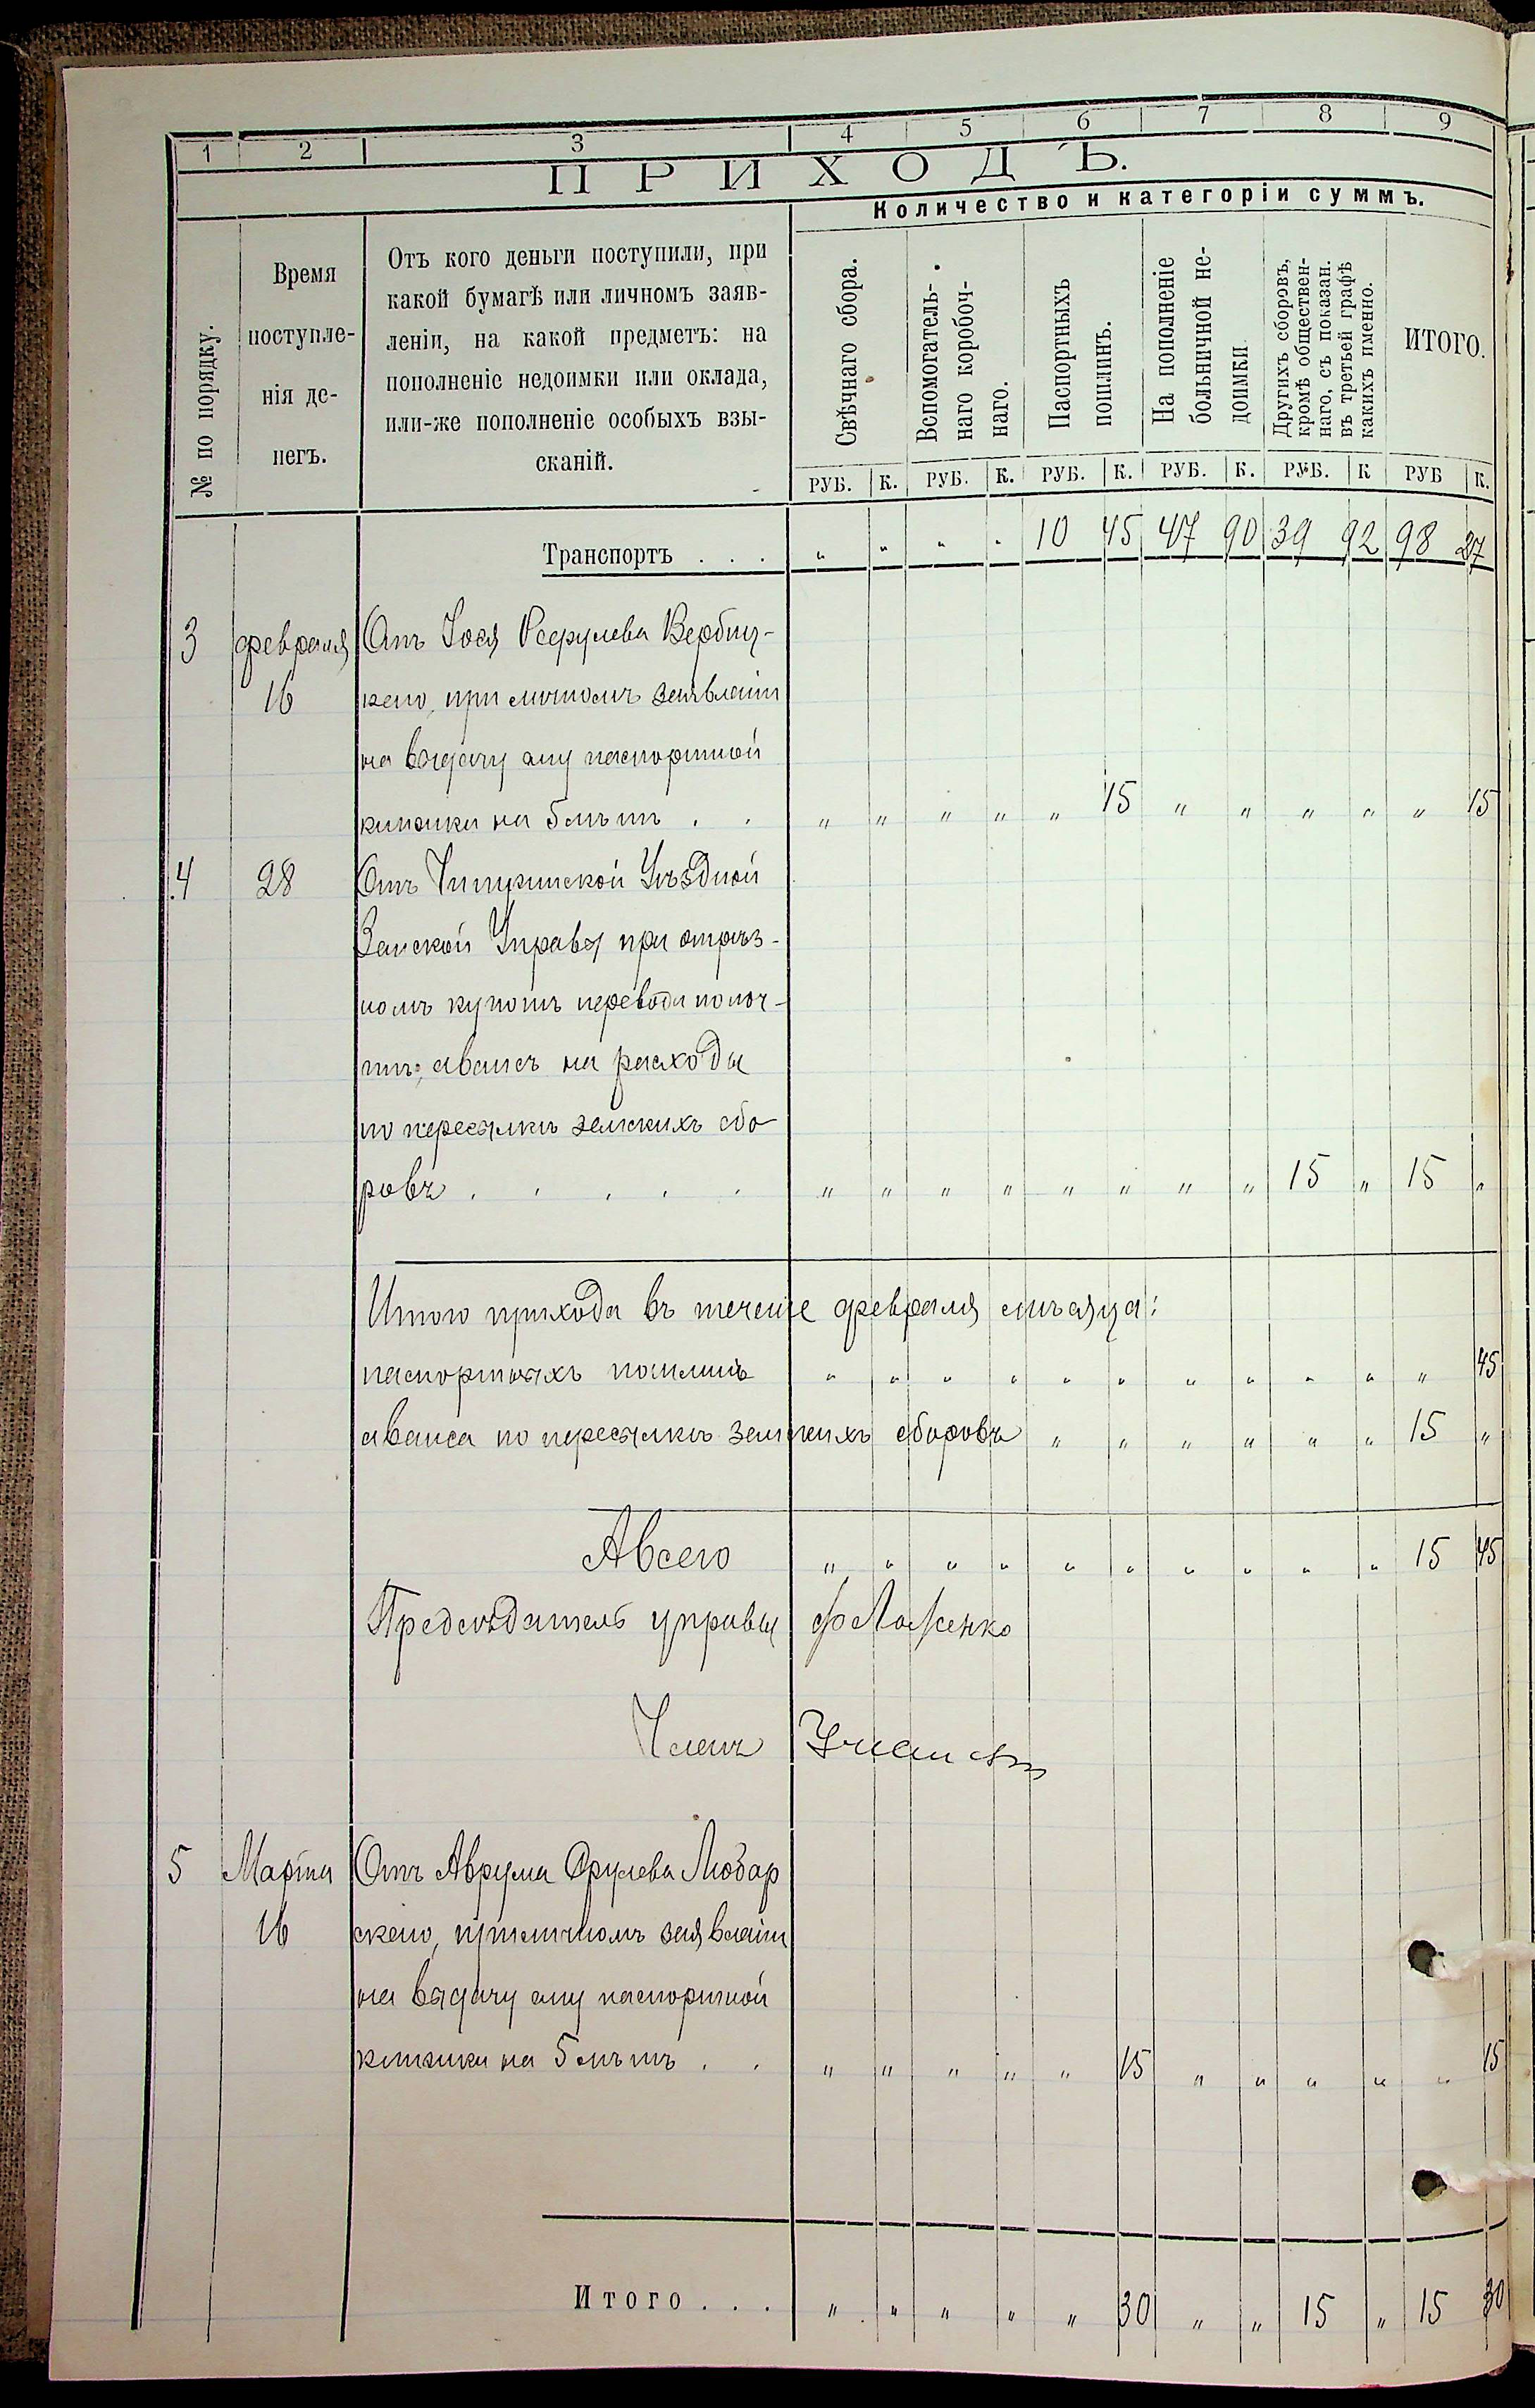 1 2 3 4 5 6 7 8 9
ПРИХОДЪ.
Количество и категоріи суммъ.
№ по порядку.
Время
поступле-
нія де-
негъ.
Отъ кого деньги поступили, при
какой бумагѣ или личномъ заяв-
леніи, на какой предметъ: на
пополненіе недоимки или оклада,
или-же пополненіе особыхъ взы-
сканій.
Свѣчнаго сбора.
Вспомогатель-
наго коробоч-
наго.
Паспортныхъ
пошлинъ.
На пополненіе
больничной не-
доимки
Другихъ сборовъ,
кромѣ обществен-
наго, съ показан.
въ третьей графѣ
какихъ именно.
ИТОГО.
РУБ. К. РУБ. К. РУБ. К. РУБ. К. РУБ. К РУБ К.
Транспортъ . . . " " " " 10 45 47 90 39 92 98 27
3 февраля Отъ Іося Вербиц-
16 каго, при личномъ заявленіи
на выдачу ему паспортной
книжки на 5 лѣтъ . . " " " " " 15 " " " " " 15
4 28 Отъ Уѣздной
Земской Управы при отрѣз-
номъ купонѣ перевода по поч-
тѣ; авансъ на расходы
по пересылкѣ земскихъ сбо
ровъ . . . . . " " " " " " " " 15 " 15 "
Итого прихода въ теченіе февраля мѣсяца:
паспортныхъ пошлинъ " " " " " " " " " " " 45
аванса по пересылкѣ земскихъ сборовъ " " " " " " 15 "
Авсего " " " " " " " " " " 15 45
Предсѣдатель управы
Членъ
5 Марта Отъ Аврума Срулева Любар
16 скаго, при личномъ заявленіи
на выдачу ему паспортной
книжки на 5 лѣтъ . . " " " " " 15 " " " " " 15
Итого . . . " " " " " 30 " " 15 " 15 30